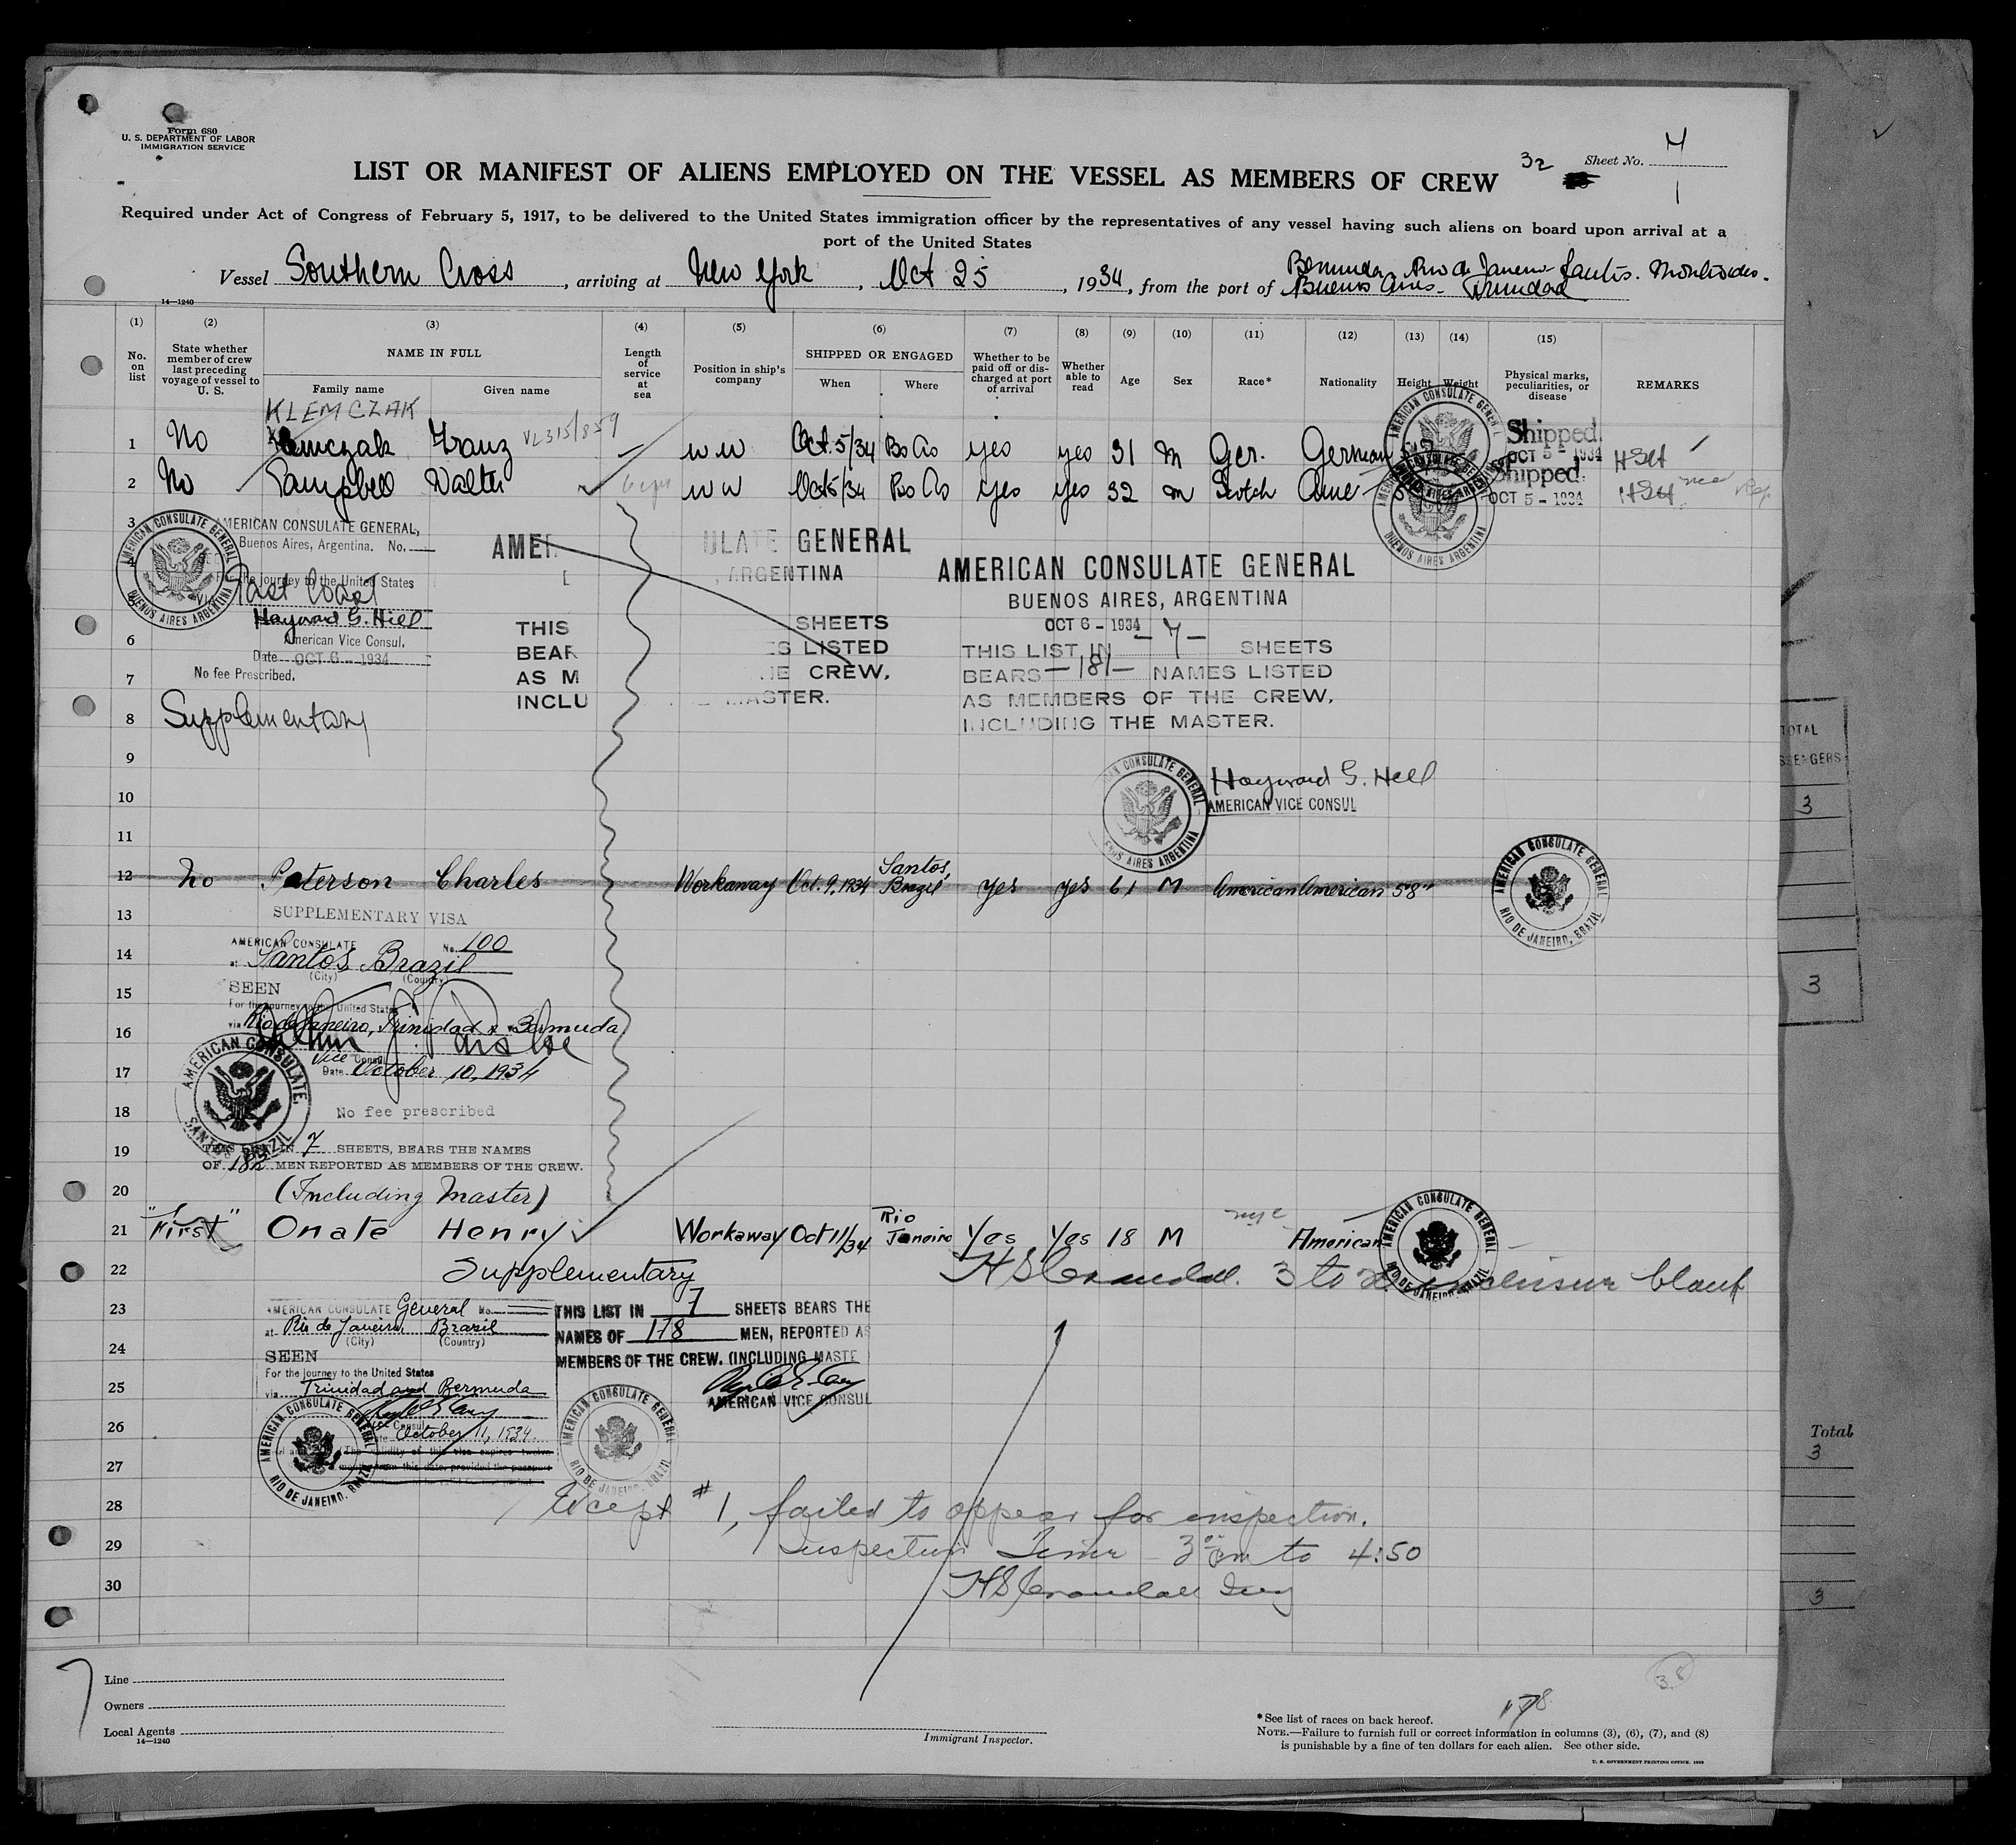 Form 680
U. S. DEPARTMENT OF LABOR
IMMIGRATION SERVICE
LIST OR MANIFEST OF ALIENS EMPLOYED ON THE VESSEL AS MEMBERS OF CREW
32
Sheet No. 7
1
Required under Act of Congress of February 5, 1917, to be delivered to the United States immigration officer by the representatives of any vessel having such aliens on board upon arrival at a
port of the United States
Vessel Southern Cross, arriving at New York, Oct 25, 1934, from the port of Bermuda Rio de Janeiro Santos. Montevideo.
Buenos Aires- Trinidad
14—1240
(1) (2) (3) (4) (5) (6) (7) (8) (9) (10) (11) (12) (13) (14) (15)
No. on list
State whether member of crew last preceding voyage of vessel to U. S.
NAME IN FULL
Family name
Given name
Length of service at sea
Position in ship's company
SHIPPED OR ENGAGED
When
Where
Whether to be paid off or discharged at port of arrival
Whether able to read
Age
Sex
Race*
Nationality
Height
Weight
Physical marks, peculiarities, or disease
REMARKS
KLEMCZAK
1 No Klemczak Franz VL315/859 — WW Oct. 5/34 Bs As yes yes 31 m Ger. German Shipped. OCT 5 - 1934
2 No Campbell Walter WW Oct 5/34 Bs As yes yes 32 m Scotch Ame Shipped. OCT 5 - 1934
AMERICAN CONSULATE GENERAL
BUENOS AIRES ARGENTINA
3
AMERICAN CONSULATE GENERAL,
Buenos Aires, Argentina. No.
For the journey to the United States
Via East Coast
Hayward G. Hill
American Vice Consul.
Date OCT 6 - 1934
No fee Prescribed.
Supplementary
AMER ULATE GENERAL
, ARGENTINA
THIS SHEETS
BEAR ES LISTED
AS M HE CREW,
INCLU MASTER.
AMERICAN CONSULATE GENERAL
BUENOS AIRES, ARGENTINA
OCT 6 - 1934
THIS LIST, IN — 7 — SHEETS
BEARS — 181 — NAMES LISTED
AS MEMBERS OF THE CREW,
INCLUDING THE MASTER.
Hayward G. Hill
AMERICAN VICE CONSUL
6
7
8
9
10
11
12 No Paterson Charles Workaway Oct. 9, 1934 Santos, Brazil yes yes 61 M American American 5'8"
AMERICAN CONSULATE GENERAL
RIO DE JANEIRO, BRAZIL
13
SUPPLEMENTARY VISA
AMERICAN CONSULATE No. 100
14
at Santos, Brazil
(City) (Country)
15
SEEN
For the journey to the United States
16
via Rio de Janeiro, Trinidad & Bermuda
Vice Consul
17
Date October 10, 1934
AMERICAN CONSULATE.
SANTOS BRAZIL
18
No fee prescribed
19
THIS LIST IN 7 SHEETS, BEARS THE NAMES
OF 182 MEN REPORTED AS MEMBERS OF THE CREW.
20
(Including Master)
21 "First" Onate Henry Workaway Oct 11/34 Rio Janeiro Yes Yes 18 M nyc American
AMERICAN CONSULATE GENERAL
RIO DE JANEIRO, BRAZIL
22
Supplementary
H S Crandall. 3 to inclusive blank
23
AMERICAN CONSULATE General No.
at Rio de Janeiro, Brazil
(City) (Country)
24
SEEN
For the journey to the United States
25
via Trinidad and Bermuda
26
Vice Consul
Date October 11, 1934.
27
The validity of this visa expires twelve
months from this date, provided the passport
THIS LIST IN 7 SHEETS BEARS THE
NAMES OF 178 MEN, REPORTED AS
MEMBERS OF THE CREW. (INCLUDING MASTE
AMERICAN VICE CONSUL
AMERICAN CONSULATE GENERAL
RIO DE JANEIRO, BRAZIL
28
Except #1, failed to appear for inspection.
29
Inspection Time 3 00 pm to 4:50
30
H S Crandall Insp
7
Line
Owners
Local Agents
14—1240
Immigrant Inspector.
178
38
*See list of races on back hereof.
NOTE.—Failure to furnish full or correct information in columns (3), (6), (7), and (8)
is punishable by a fine of ten dollars for each alien. See other side.
U. S. GOVERNMENT PRINTING OFFICE
TOTAL
SSENGERS
3
3
Total
3
3